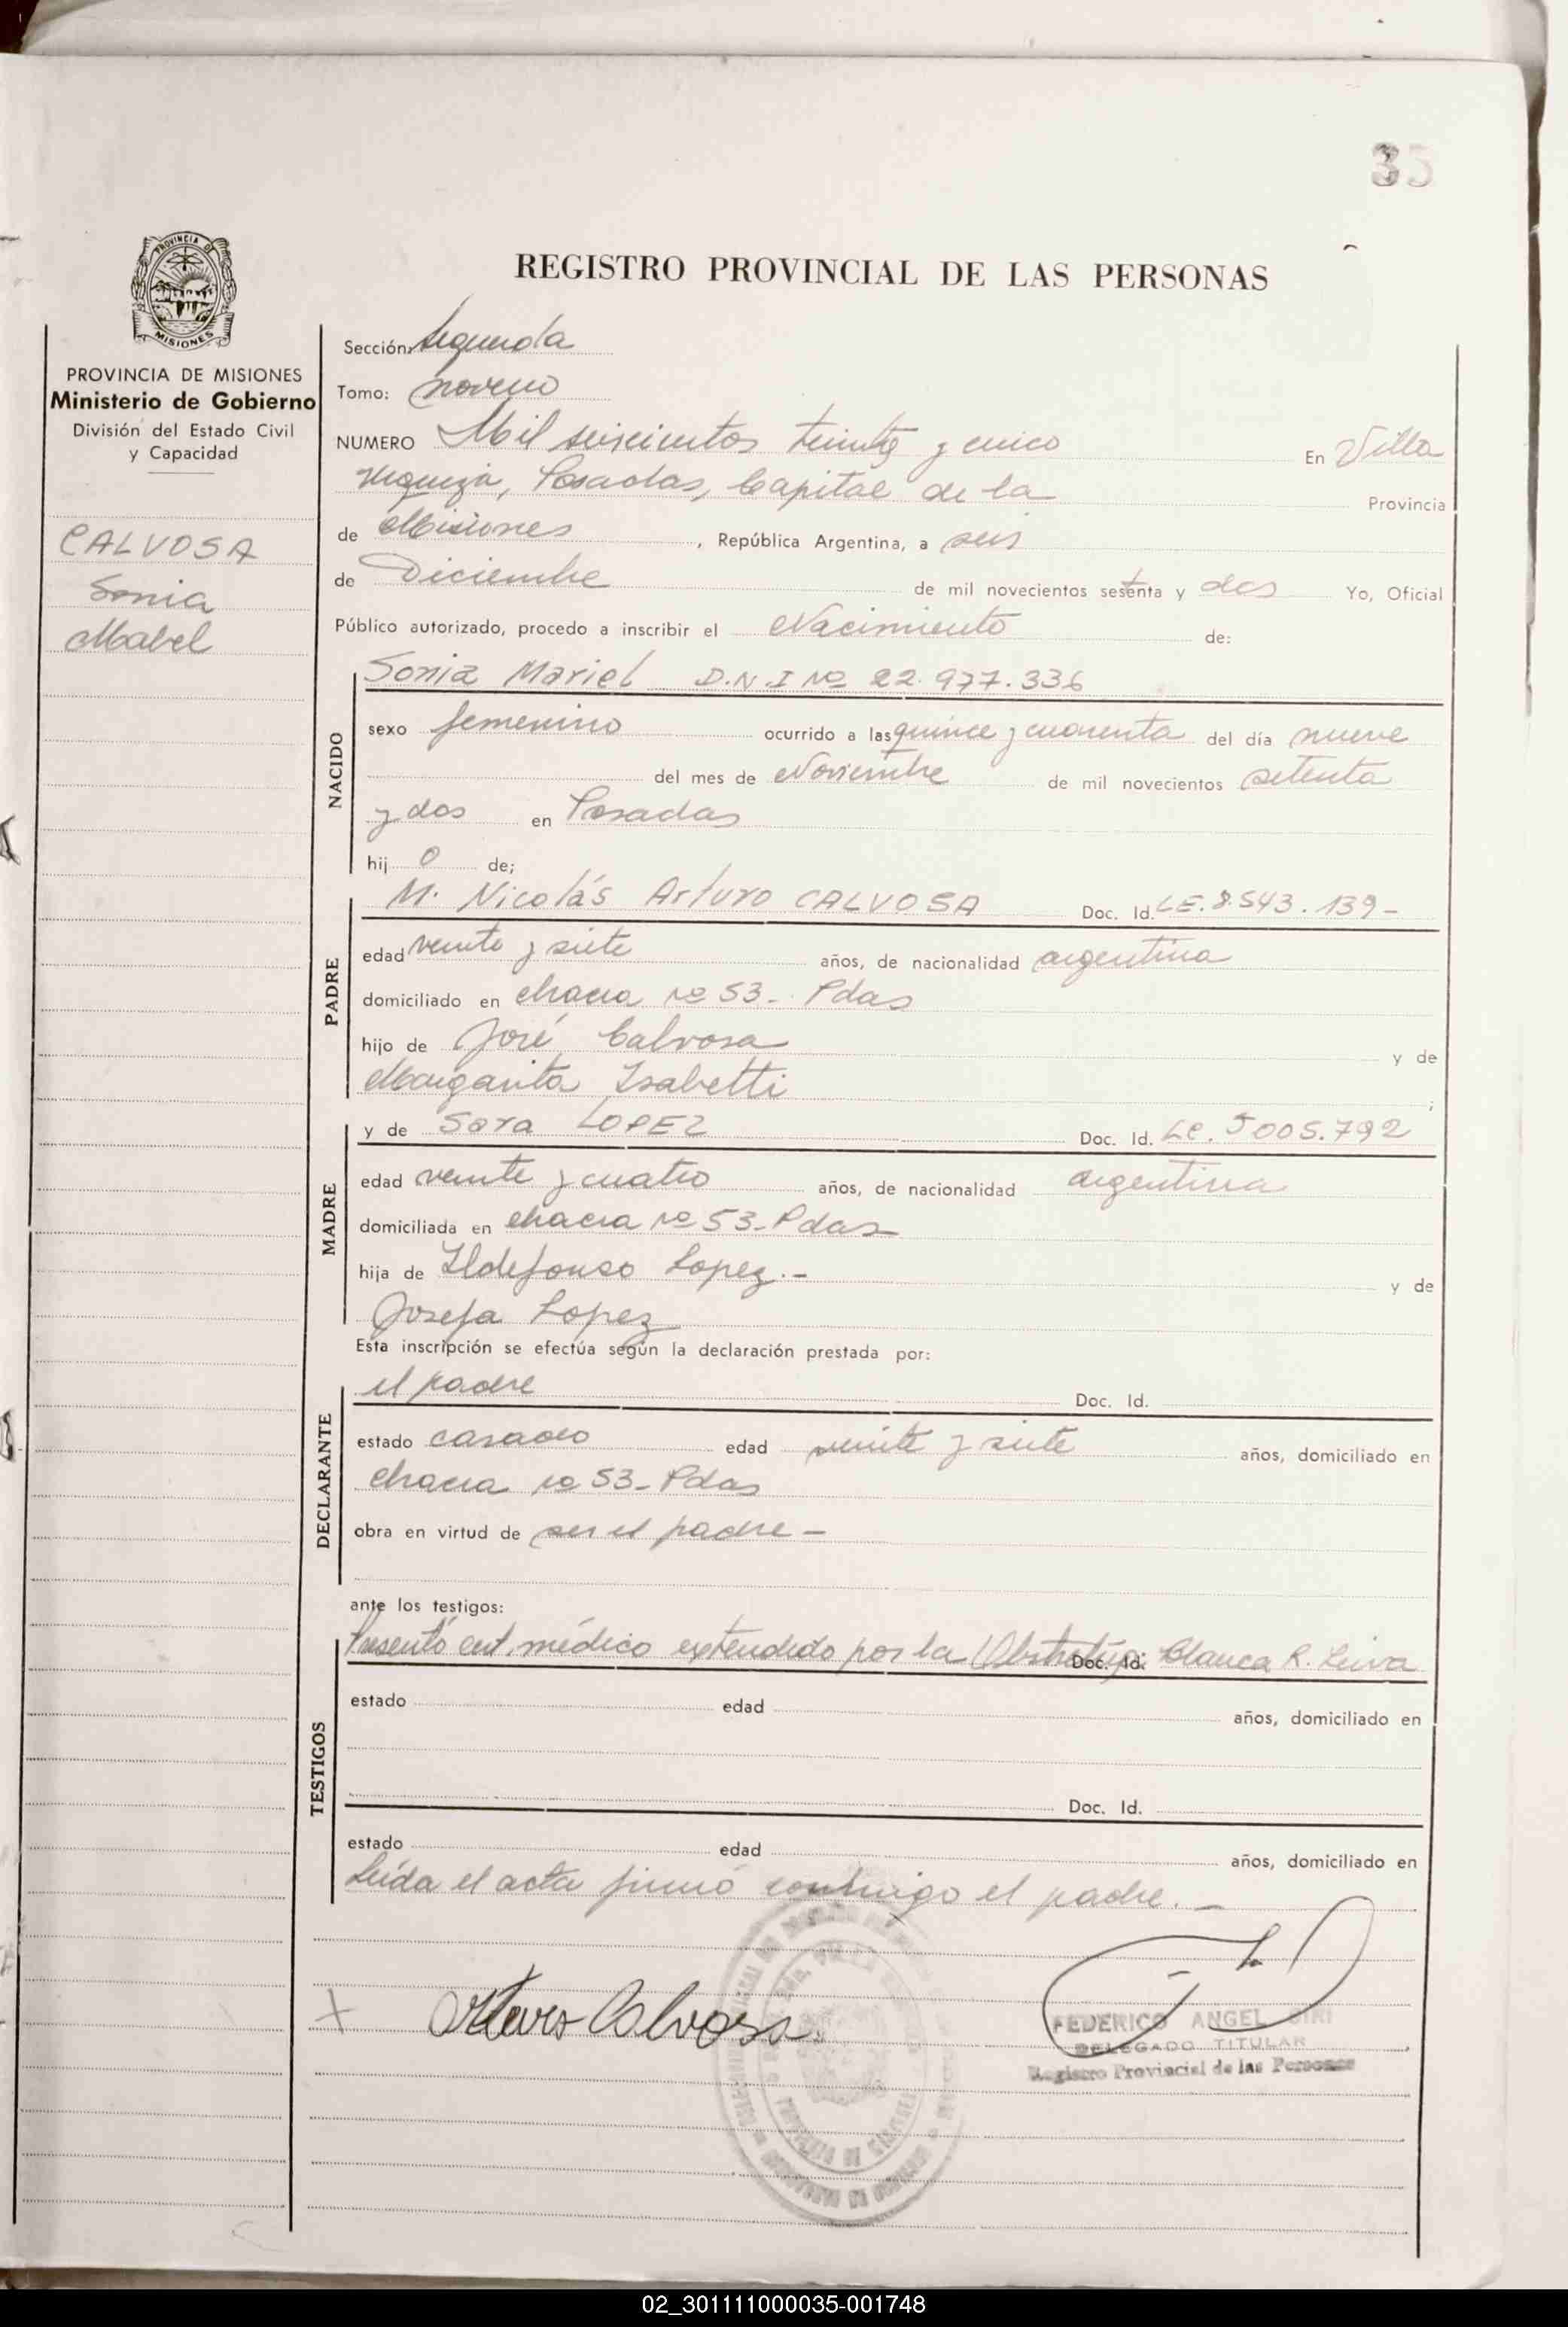 35
REGISTRO PROVINCIAL DE LAS PERSONAS
PROVINCIA DE
MISIONES
PROVINCIA DE MISIONES
Ministerio de Gobierno
División del Estado Civil
y Capacidad
CALVOSA
Sonia
Mabel
Sección: Segunda
Tomo: noveno
NUMERO Mil seiscientos treinta y cinco En Villa
Urquiza, Posadas, Capital de la Provincia
de Misiones, República Argentina, a seis
de Diciembre de mil novecientos setenta y dos Yo, Oficial
Público autorizado, procedo a inscribir el Nacimiento de:
NACIDO
Sonia Mariel D.N.I Nº 22.977.336
sexo femenino ocurrido a las quince y cuarenta del día nueve
del mes de Noviembre de mil novecientos setenta
y dos en Posadas
hij o de;
PADRE
M. Nicolás Arturo CALVOSA Doc. Id. LE. 8.543.139-
edad veinte y siete años, de nacionalidad argentina
domiciliado en chacra nº 53-. Pdas
hijo de José Calvosa y de
Margarita Isabetti ;
MADRE
y de Sara LOPEZ Doc. Id. LC. 5005.792
edad veinte y cuatro años, de nacionalidad argentina
domiciliada en chacra nº 53-Pdas
hija de Ildefonso Lopez.- y de
Josefa Lopez
Esta inscripción se efectúa según la declaración prestada por:
DECLARANTE
el padre Doc. Id.
estado casado edad veinte y siete años, domiciliado en
chacra nº 53-Pdas
obra en virtud de ser el padre-
ante los testigos:
TESTIGOS
Presentó cert. médico extendido por la Obstetra Doc. Id. Blanca R. Leiva
estado edad años, domiciliado en
Doc. Id.
estado edad años, domiciliado en
Leída el acta firmó conmigo el padre.-
Arturo Calvosa.
FEDERICO ANGEL SIRI
DELEGADO TITULAR
Registro Provincial de las Personas
02_301111000035-001748